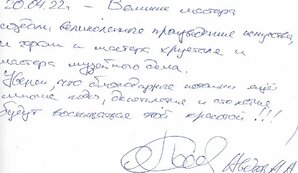 20.04.22г. – Великие мастера
создали великолепное произведение искусства,
и храм и мастера хрусталя и
мастера музейного дела.
Уверен, что благодарные потомки ещё
многие годы, десятилетия и столетия
будут восхищаться этой красотой!!!